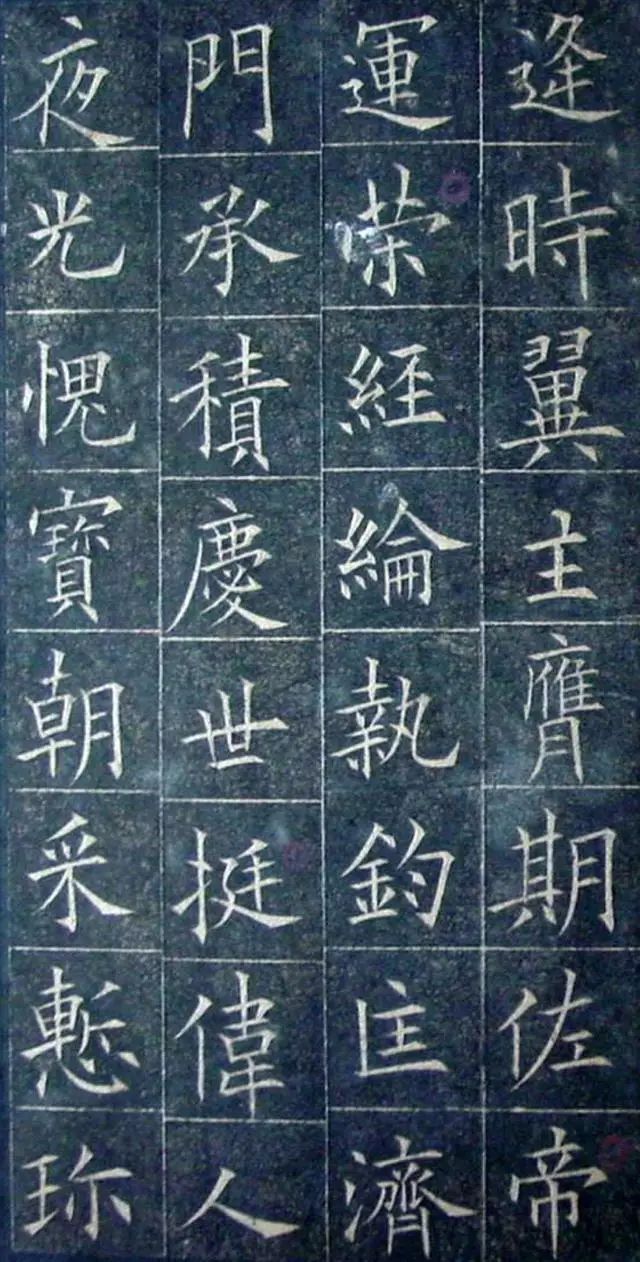 逢時翼主膺期佐帝
運榮經綸執鈞匡濟
門承積慶世挺偉人
夜光愧寶朝采慙珎